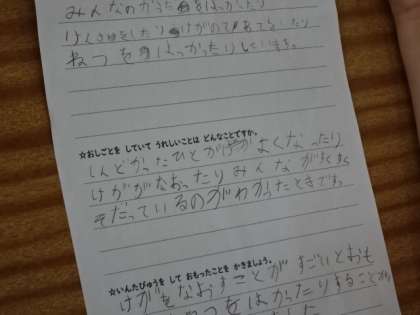 みんなのからだをはかったり
けんさをしたりけがのてあてをしたり
ねつをはかったりしています。
☆おしごとを していて うれしいことは どんなことですか。
しんどかったひとがよくなったり
けががなおったりみんながすくすく
そだっているのがわかったときです。
☆いんたびゅうを して おもったことを かきましょう。
けがをなおすことがすごいとおも
つをはかったりすることが
ました